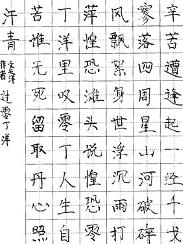 辛苦遭逢起一经干戈
寥落四周星山河破碎
风飘絮身世浮沉雨打
萍惶恐滩头说惶恐零
丁洋里叹零丁人生自
苦谁无死留取丹心照
汗青
文天祥
作者
过零丁洋